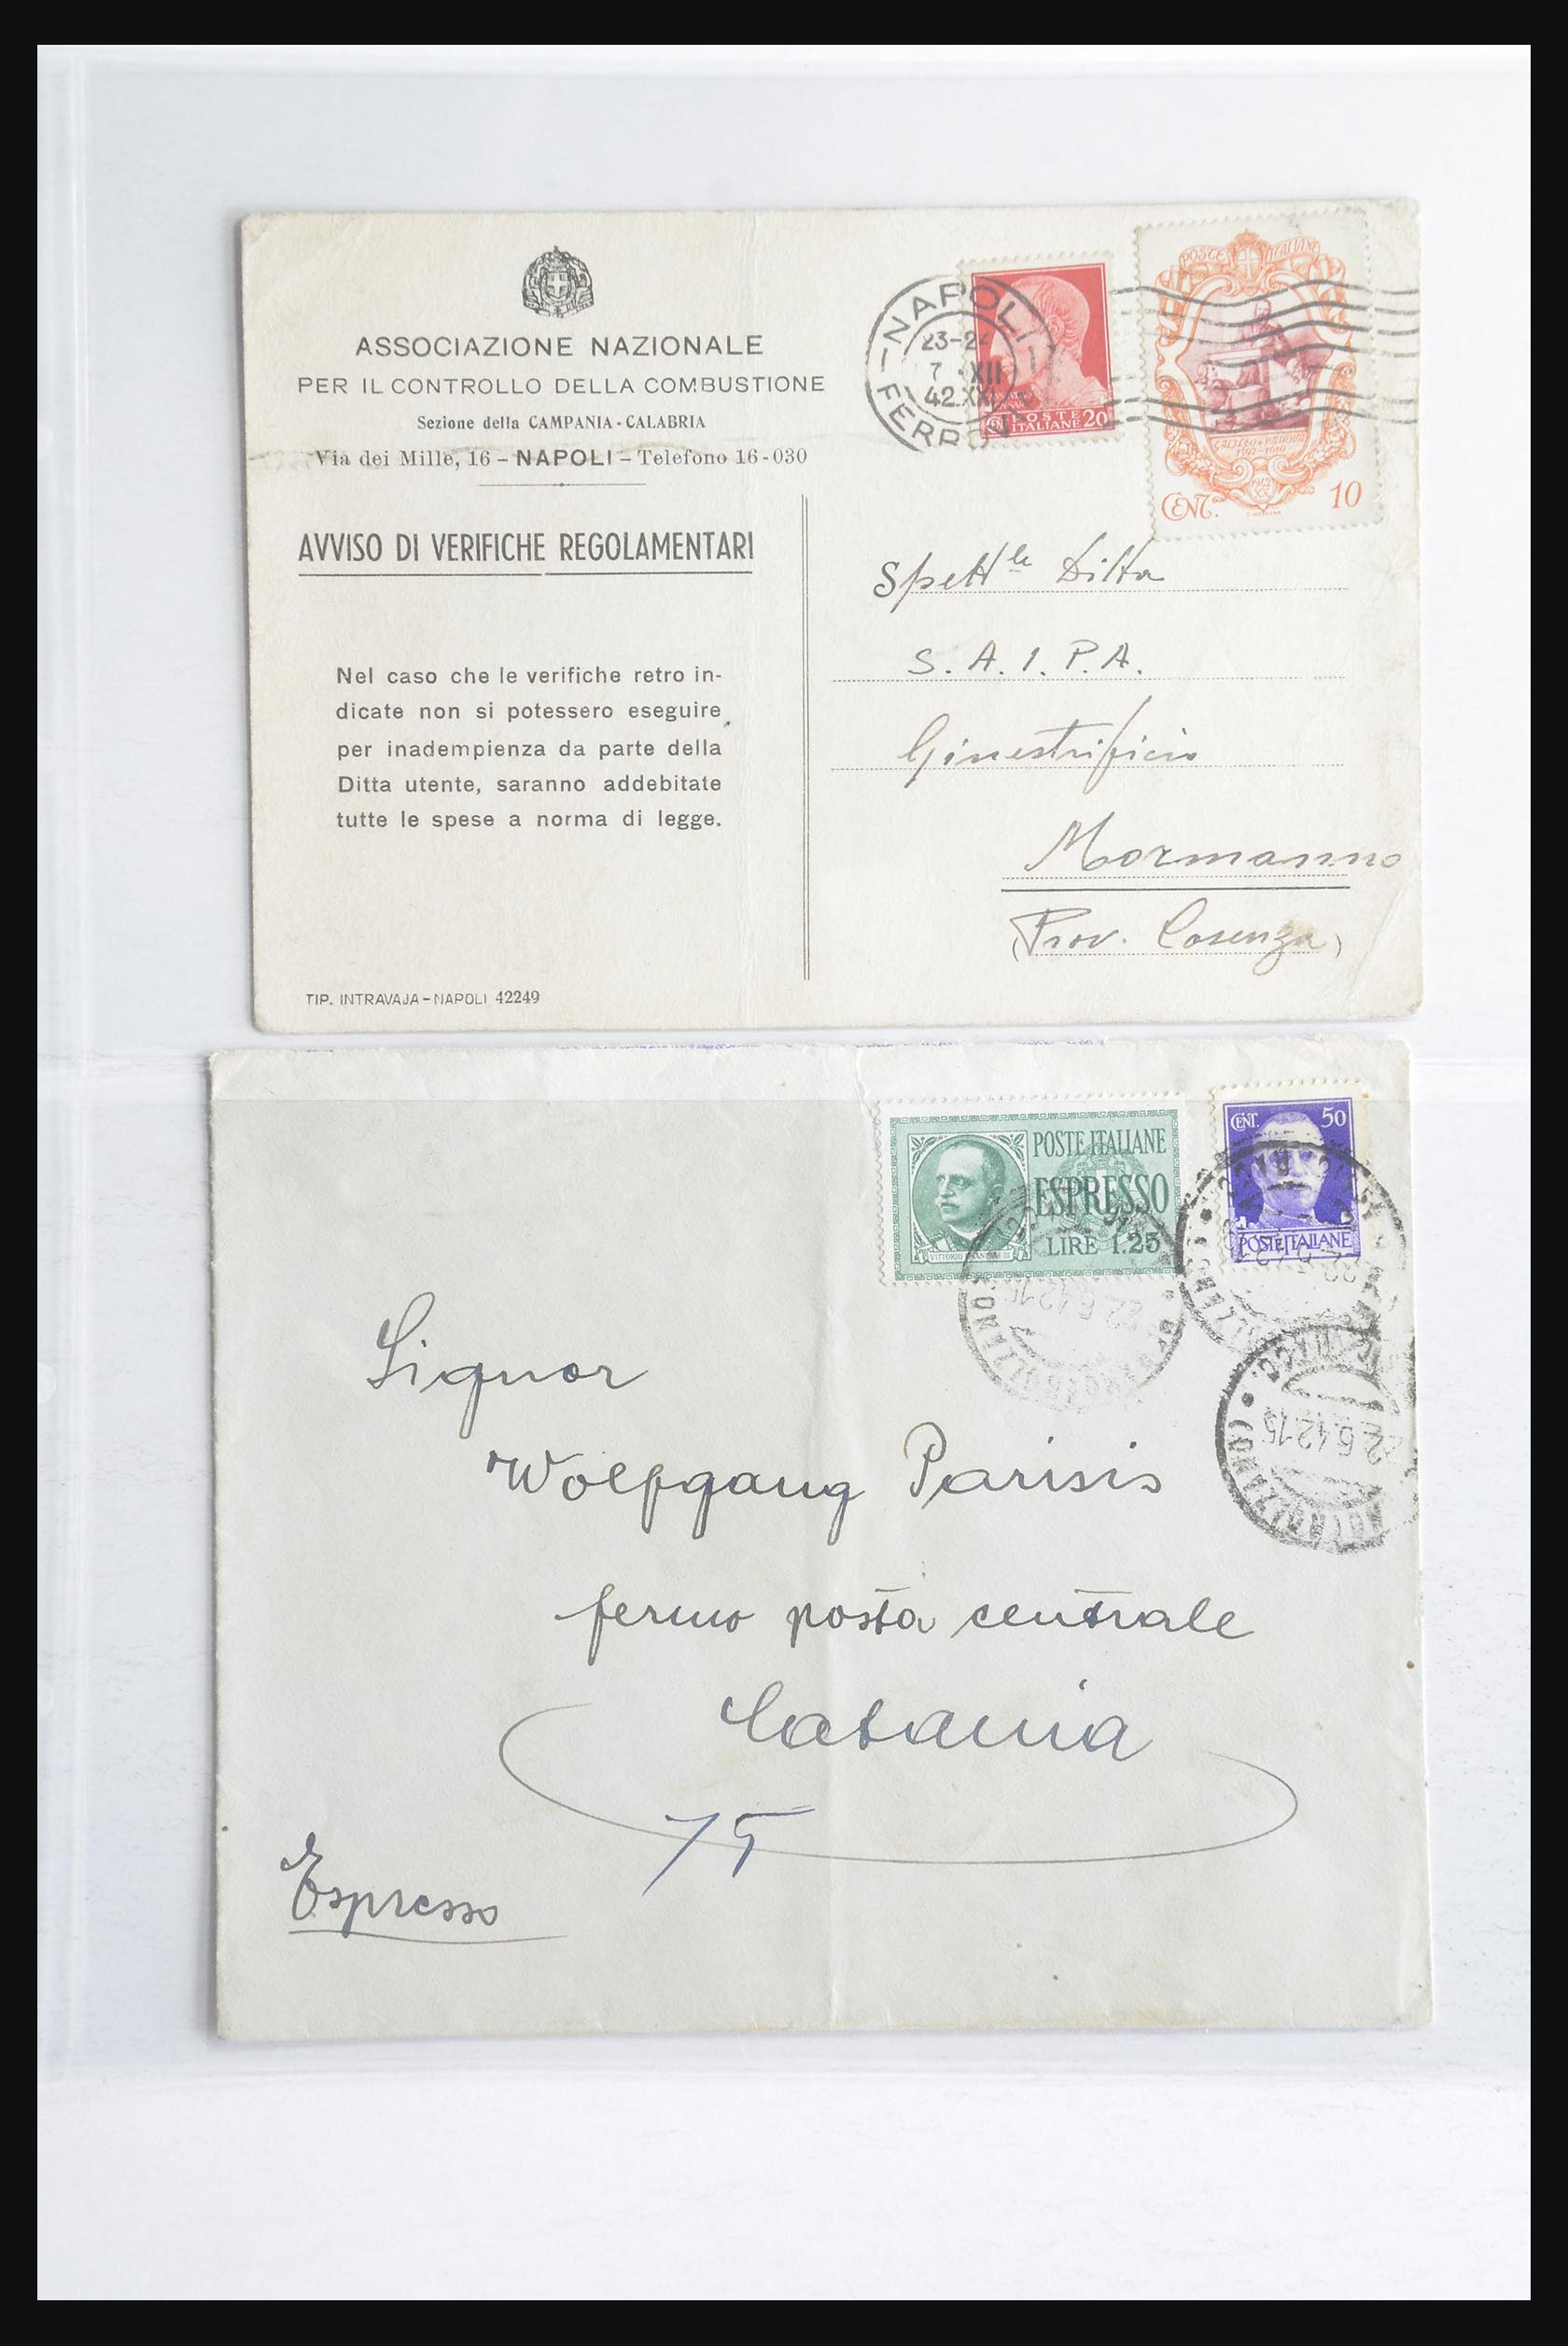 ASSOCIAZIONE NAZIONALE
PER IL CONTROLLO DELLA COMBUSTIONE
Sezione della CAMPANIA - CALABRIA
Via dei Mille, 16 – NAPOLI – Telefono 16-030
AVVISO DI VERIFICHE REGOLAMENTARI
Nel caso che le verifiche retro in-
dicate non si potessero eseguire
per inadempienza da parte della
Ditta utente, saranno addebitate
tutte le spese a norma di legge.
TIP. INTRAVAJA – NAPOLI 42249
NAPOLI
23-2
7 XII
42.XX
POSTE
ITALIANE 20
POSTE ITALIANE
GALILEO A PADOVA
1592-1610
1942
XX
CENT. 10
Spettle Ditta
S. A. I. P. A.
Ginestrificio
Mormanno
(Prov. Cosenza)
POSTE ITALIANE
ESPRESSO
LIRE 1.25
VITTORIO EMANUELE III
CENT. 50
POSTE ITALIANE
22.6.42.15
22.6.42.15
Signor
Wolfgang Parisis
fermo posta centrale
Catania
75
Espresso